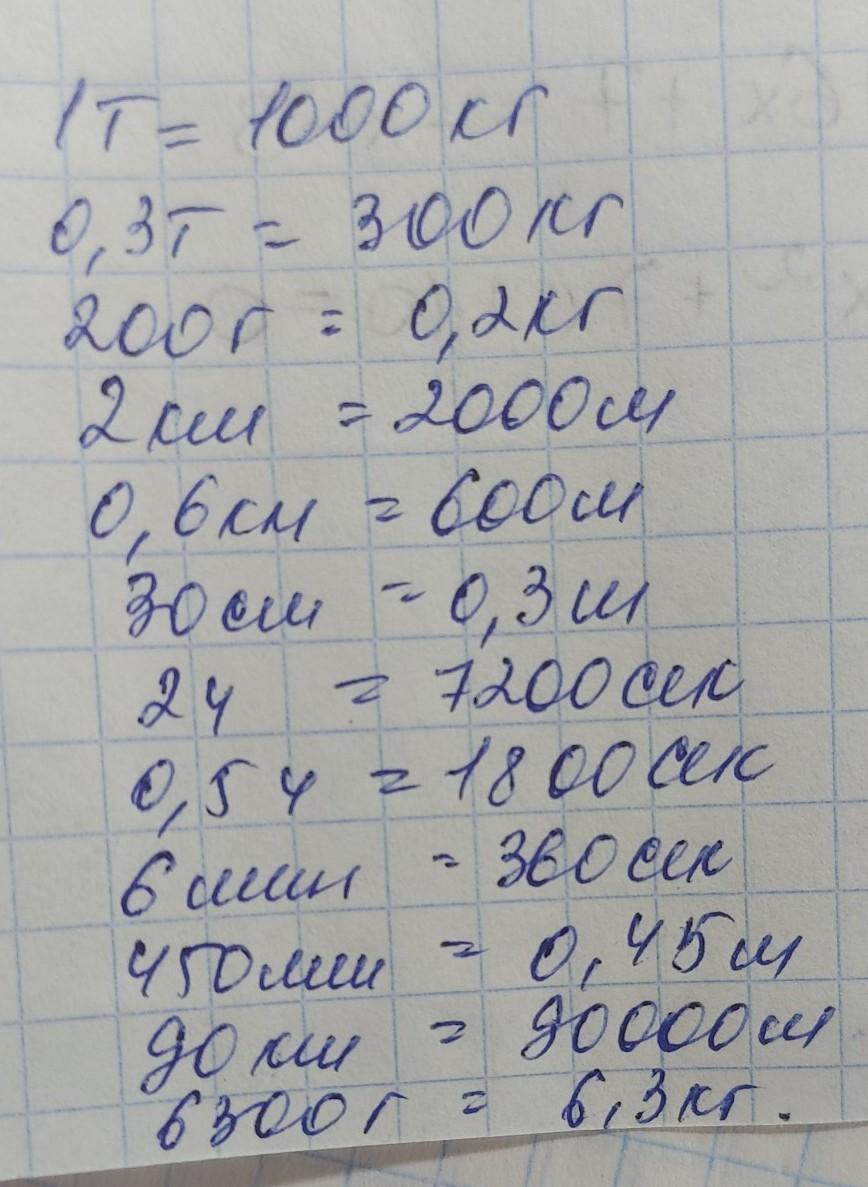 1т = 1000кг
0,3т = 300кг
200г = 0,2кг
2км = 2000м
0,6км = 600м
30см = 0,3м
2ч = 7200сек
0,5ч = 1800сек
6мин = 360сек
450мм = 0,45м
90км = 90000м
6300г = 6,3кг.